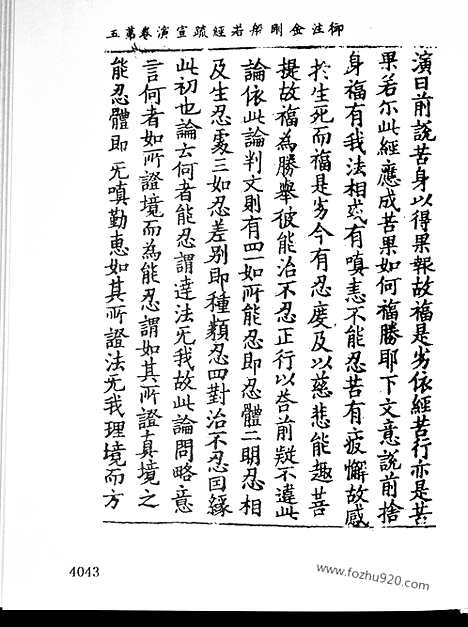 御注金剛般若經疏宣演卷第五
演曰前說苦身以得果報故福是劣依經苦行亦是苦
果若尒此經應成苦果如何福勝耶下文意說前捨
身福有我法相或有嗔恚不能忍苦有疲懈故感
扵生死而福是劣今有忍度及以慈悲能趣菩
提故福為勝舉彼能治不忍正行以荅前疑不違此
論依此論判文則有四一如所能忍即忍體二明忍相
及生忍處三如忍差别即種類忍四對治不忍因緣
此初也論云何者能忍謂達法无我故此論問略意
言何者如所證境而為能忍謂如其所證真境之
能忍體即无嗔勤恵如其所證法无我理境而方
4043
www.fozhu920.com